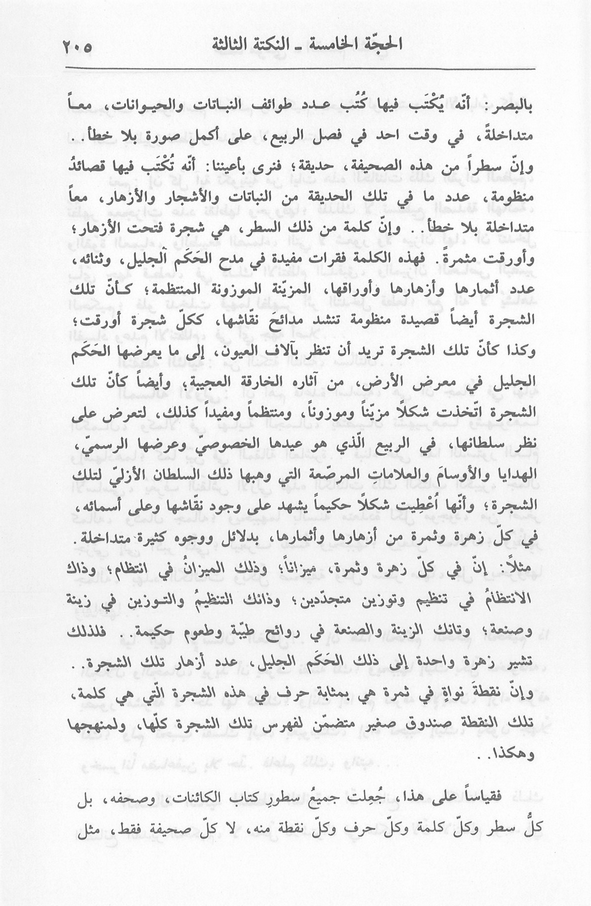 الحجّة الخامسة ـ النكتة الثالثة ٢٠٥
بالبصر: أنّه يُكْتَب فيها كُتُب عدد طوائف النباتات والحيوانات، معاً
متداخلةً، في وقت احد في فصل الربيع، على أكمل صورة بلا خطأ..
وإنّ سطراً من هذه الصحيفة، حديقة؛ فنرى بأعيننا: أنّه تُكْتَب فيها قصائدُ
منظومة، عدد ما في تلك الحديقة من النباتات والأشجار والأزهار، معاً
متداخلة بلا خطأ.. وإنّ كلمة من ذلك السطر، هي شجرة فتحت الأزهار؛
وأورقت مثمرةً. فهذه الكلمة فقرات مفيدة في مدح الحَكَم الجليل، وثنائه،
عدد أثمارها وأزهارها وأوراقها، المزيّنة الموزونة المنتظمة؛ كأنّ تلك
الشجرة أيضاً قصيدة منظومة تنشد مدائحَ نقاشها، ككلّ شجرة أورقت؛
وكذا كأنّ تلك الشجرة تريد أن تنظر بآلاف العيون، إلى ما يعرضها الحَكَم
الجليل في معرض الأرض، من آثاره الخارقة العجيبة؛ وأيضاً كأنّ تلك
الشجرة اتّخذت شكلاً مزيّناً وموزوناً، ومنتظماً ومفيداً كذلك، لتعرض على
نظر سلطانها، في الربيع الّذي هو عيدها الخصوصيّ وعرضها الرسميّ،
الهدايا والأوسامَ والعلامات المرصّعة التي وهبها ذلك السلطان الأزليّ لتلك
الشجرة؛ وأنّها أُعْطِيت شكلاً حكيماً يشهد على وجود نقّاشها وعلى أسمائه،
في كلّ زهرة وثمرة من أزهارها وأثمارها، بدلائل ووجوه كثيرة متداخلة.
مثلاً: إنّ في كلّ زهرة وثمرة، ميزاناً؛ وذلك الميزانُ في انتظام؛ وذاك
الانتظامُ في تنظيم وتوزين متجدّدين؛ وذانك التنظيمُ والتوزين في زينة
وصنعة؛ وتانك الزينة والصنعة في روائح طيّبة وطعوم حكيمة.. فلذلك
تشير زهرة واحدة إلى ذلك الحَكَم الجليل، عدد أزهار تلك الشجرة..
وإنّ نقطةَ نواةٍ في ثمرة هي بمثابة حرف في هذه الشجرة الّتي هي كلمة،
تلك النقطة صندوق صغير متضمّن لفهرس تلك الشجرة كلّها، ولمنهجها
وهكذا..
فقياساً على هذا، جُعِلت جميعُ سطورِ كتاب الكائنات، وصحفه، بل
كلُّ سطر وكلّ كلمة وكلّ حرف وكلّ نقطة منه، لا كلّ صحيفة فقط، مثل